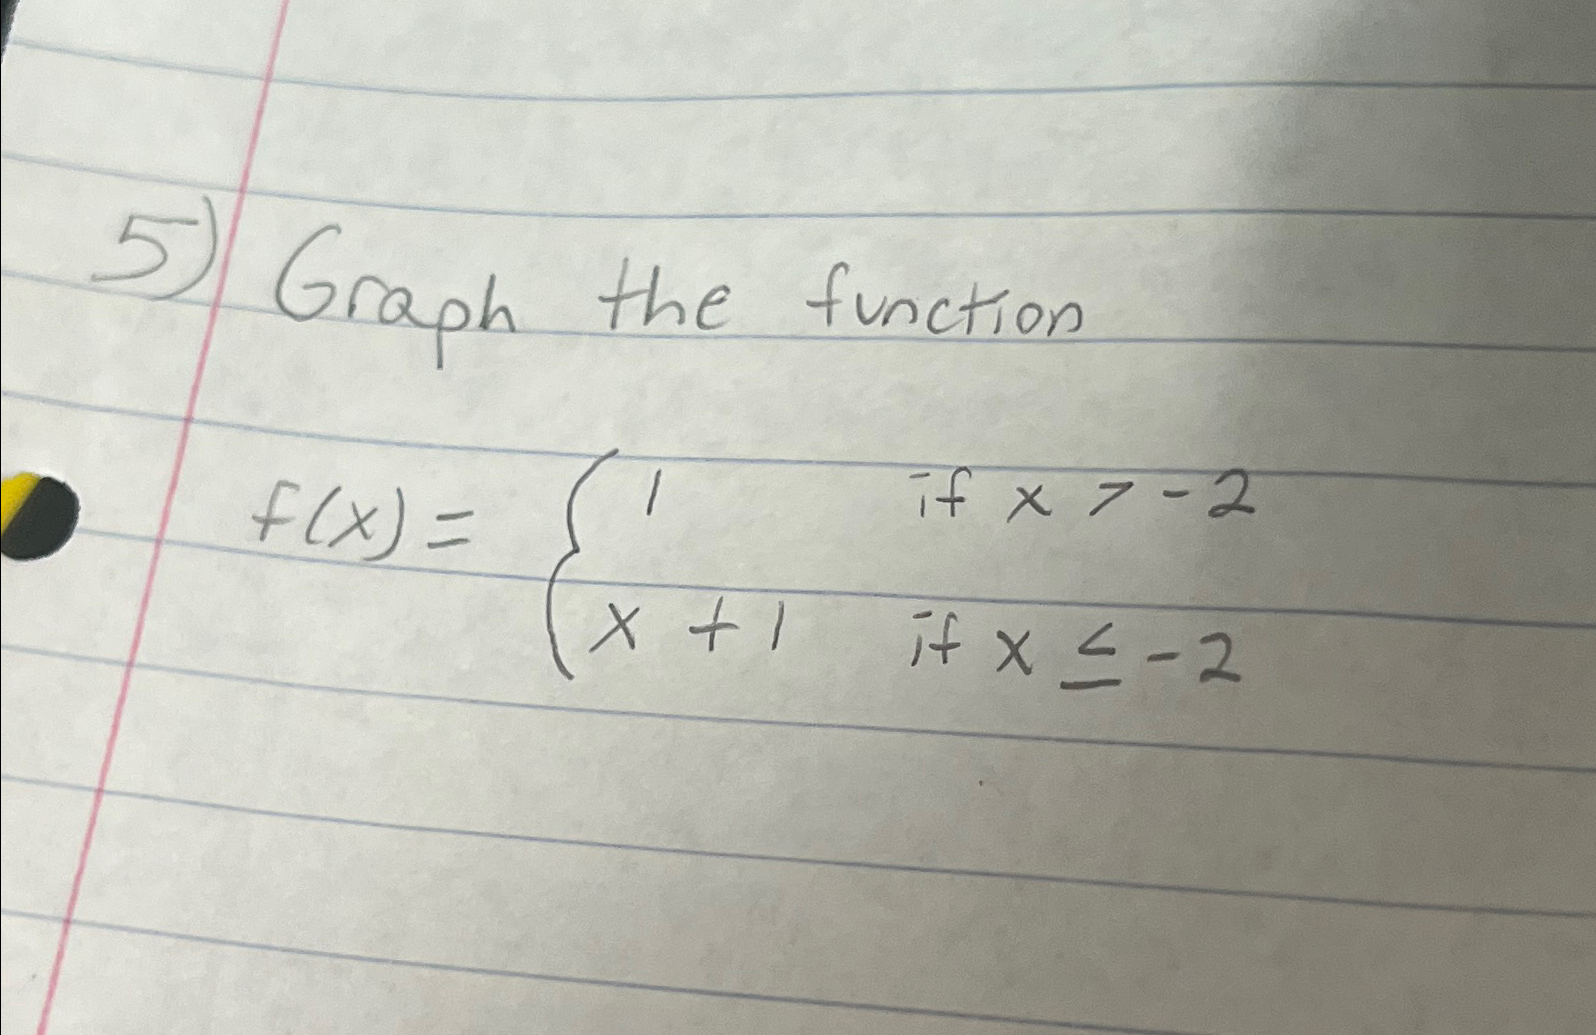 5) Graph the function
f(x) = { 1 if x > -2
x + 1 if x ≤ -2